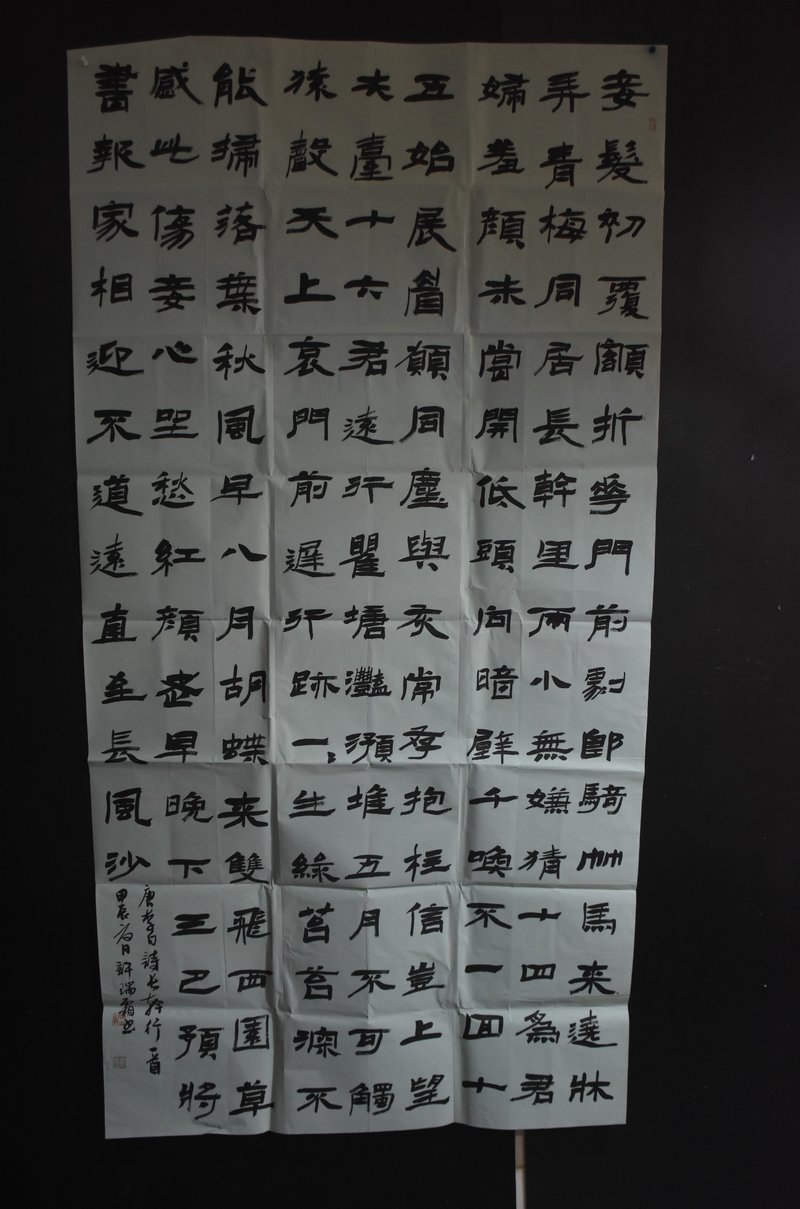 妾髮初覆額折華門前劇郎騎竹馬来遶牀
弄青梅同居長幹里兩小無嫌猜十四為君
婦羞顏未嘗開低頭向暗壁千喚不一回十
五始展眉願同塵與灰常存抱柱信豈上望
夫臺十六君遠行瞿塘灩澦堆五月不可觸
猿聲天上哀門前遲行跡一〻生綠苔苔深不
能掃落葉秋風早八月胡蝶来雙飛西園草
感此傷妾心坐愁紅顏老早晚下三巴預將
書報家相迎不道遠直至長風沙
唐李白詩長幹行一首
甲辰日許瑞霜書